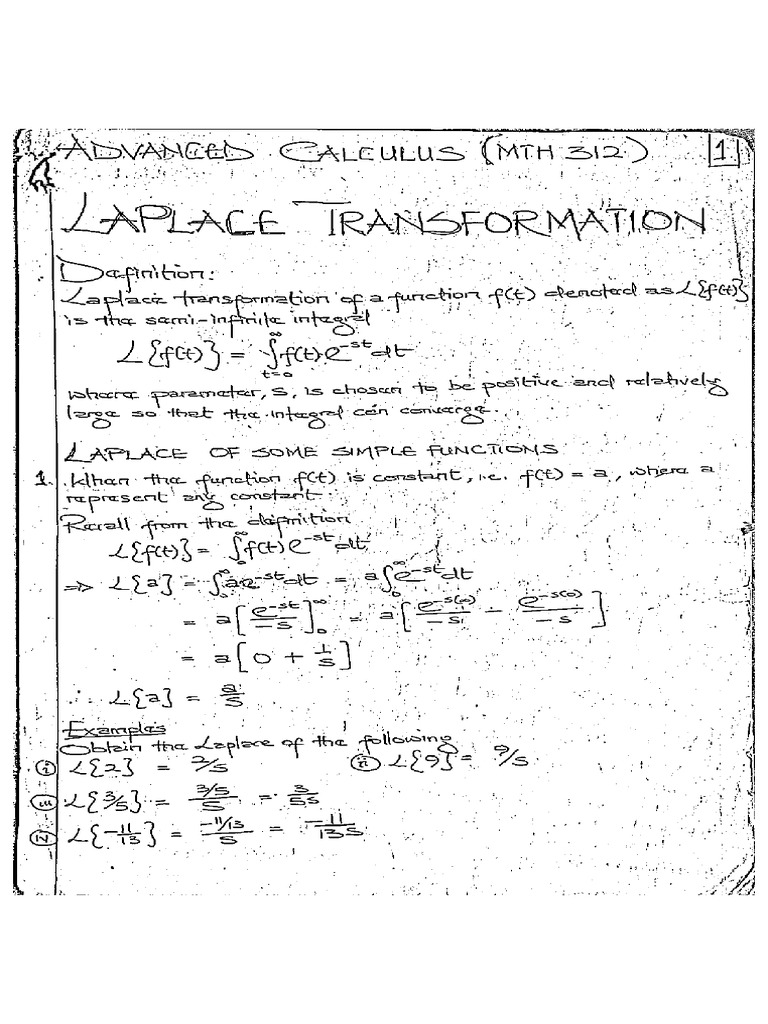 ADVANCED CALCULUS (MTH 312) 1
LAPLACE TRANSFORMATION
Definition:
Laplace transformation of a function f(t) denoted as L{f(t)}
is the semi-infinite integral
L{f(t)} = ∫_{t=0}^{∞} f(t)e^{-st}dt
where parameter, s, is chosen to be positive and relatively
large so that the integral can converge.
LAPLACE OF SOME SIMPLE FUNCTIONS
1. When the function f(t) is constant, i.e. f(t) = a, where a
represent any constant.
Recall from the definition
L{f(t)} = ∫_0^∞ f(t)e^{-st}dt
⇒ L{a} = ∫_0^∞ ae^{-st}dt = a∫_0^∞ e^{-st}dt
= a[e^{-st}/-s]_0^∞ = a[e^{-s(∞)}/-s - e^{-s(0)}/-s]
= a[0 + 1/s]
∴ L{a} = a/s
Examples
Obtain the Laplace of the following
(i) L{2} = 2/s (ii) L{9} = 9/s
(iii) L{3/5} = (3/5)/s = 3/5s
(iv) L{-11/13} = (-11/13)/s = -11/13s